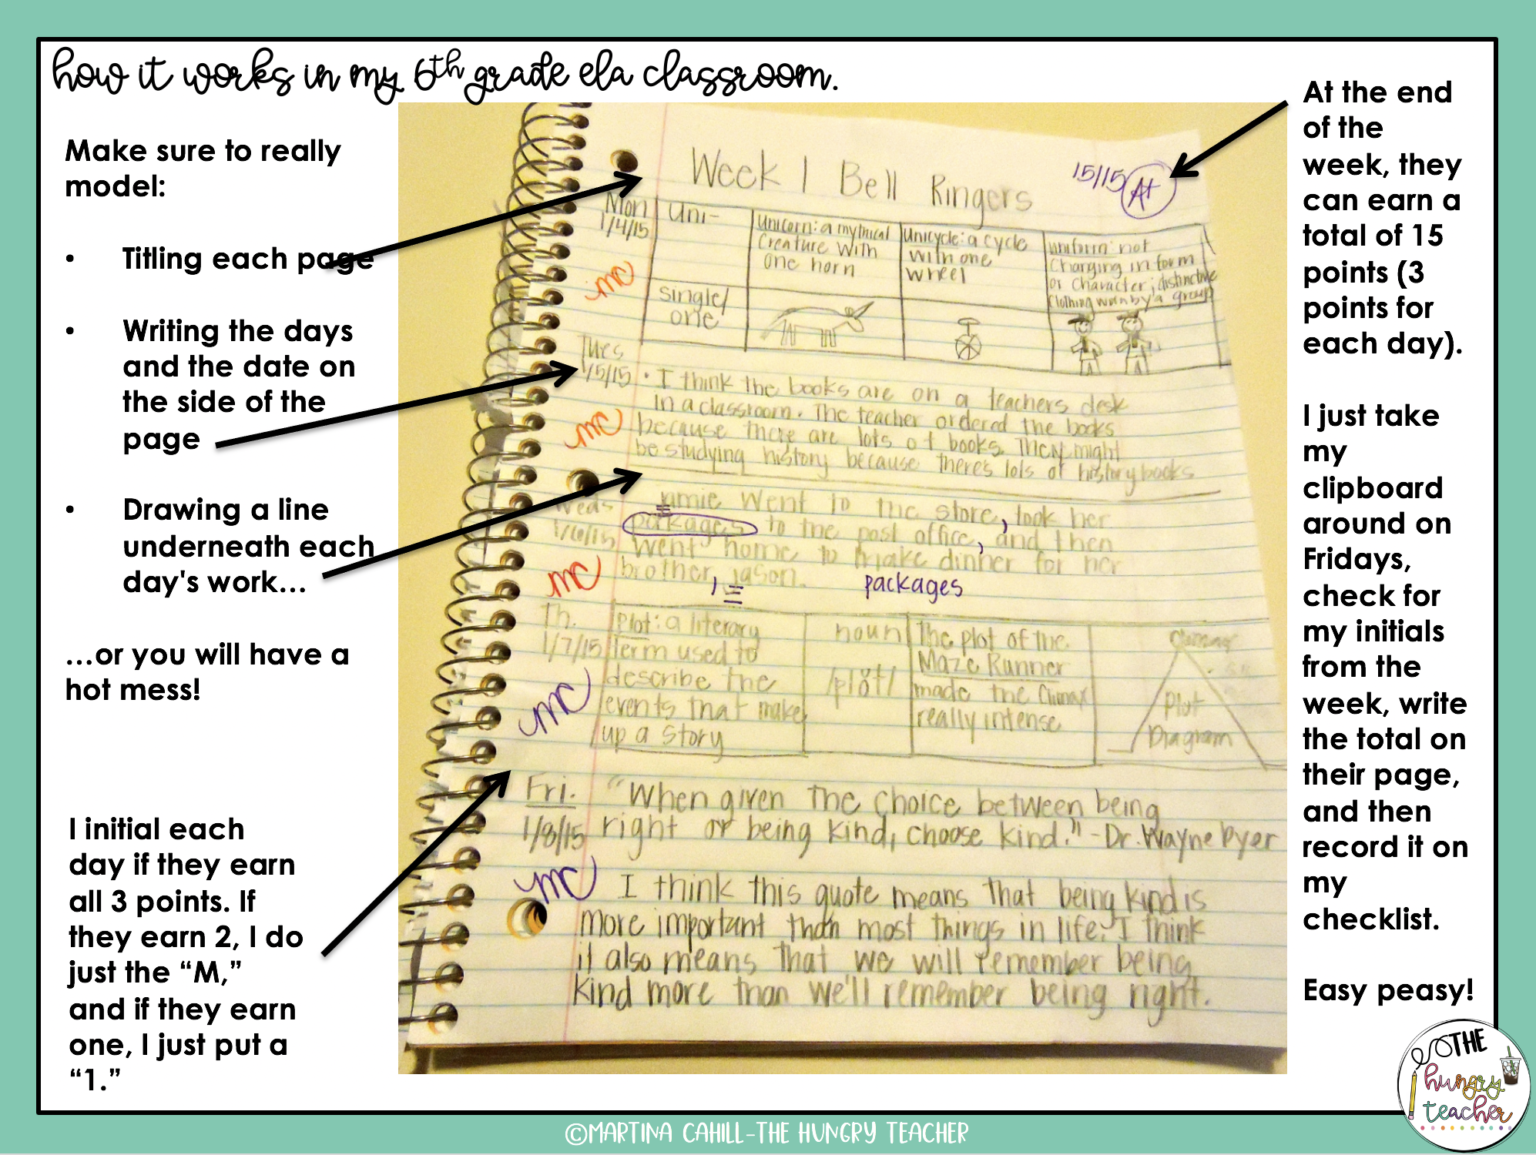 how it works in my 6th grade ela classroom.
Make sure to really
model:
• Titling each page
• Writing the days
and the date on
the side of the
page
• Drawing a line
underneath each
day's work...
...or you will have a
hot mess!
I initial each
day if they earn
all 3 points. If
they earn 2, I do
just the “M,”
and if they earn
one, I just put a
“1.”
Week 1 Bell Ringers
15/15 A+
Mon
1/4/15
mc
uni-
single/
one
Unicorn: a mythical
creature with
one horn
Unicycle: a cycle
with one
wheel
uniform: not
changing in form
or character; distinctive
clothing worn by a group
Tues
1/5/15
mc
• I think the books are on a teachers desk
in a classroom. The teacher ordered the books
because there are lots of books. They might
be studying history because there's lots of history books
Weds
1/6/15
mc
jamie went to the store, took her
packages to the post office, and then
went home to make dinner for her
brother, jason.
packages
Th.
1/7/15
mc
Plot: a literary
term used to
describe the
events that make
up a story
noun
/plŏt/
The plot of the
Maze Runner
made the Climax
really intense
Plot
Diagram
Fri.
1/8/15
mc
"When given the choice between being
right or being kind, choose kind." -Dr. Wayne Dyer
I think this quote means that being kind is
more important than most things in life. I think
it also means that we will remember being
kind more than we'll remember being right.
At the end
of the
week, they
can earn a
total of 15
points (3
points for
each day).
I just take
my
clipboard
around on
Fridays,
check for
my initials
from the
week, write
the total on
their page,
and then
record it on
my
checklist.
Easy peasy!
THE
hungry
teacher
©MARTINA CAHILL-THE HUNGRY TEACHER